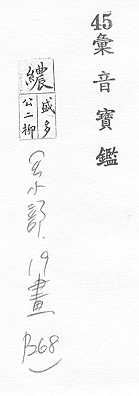 45彙音寶鑑
盛多
繷
公二柳
(糸部.19畫
B68)